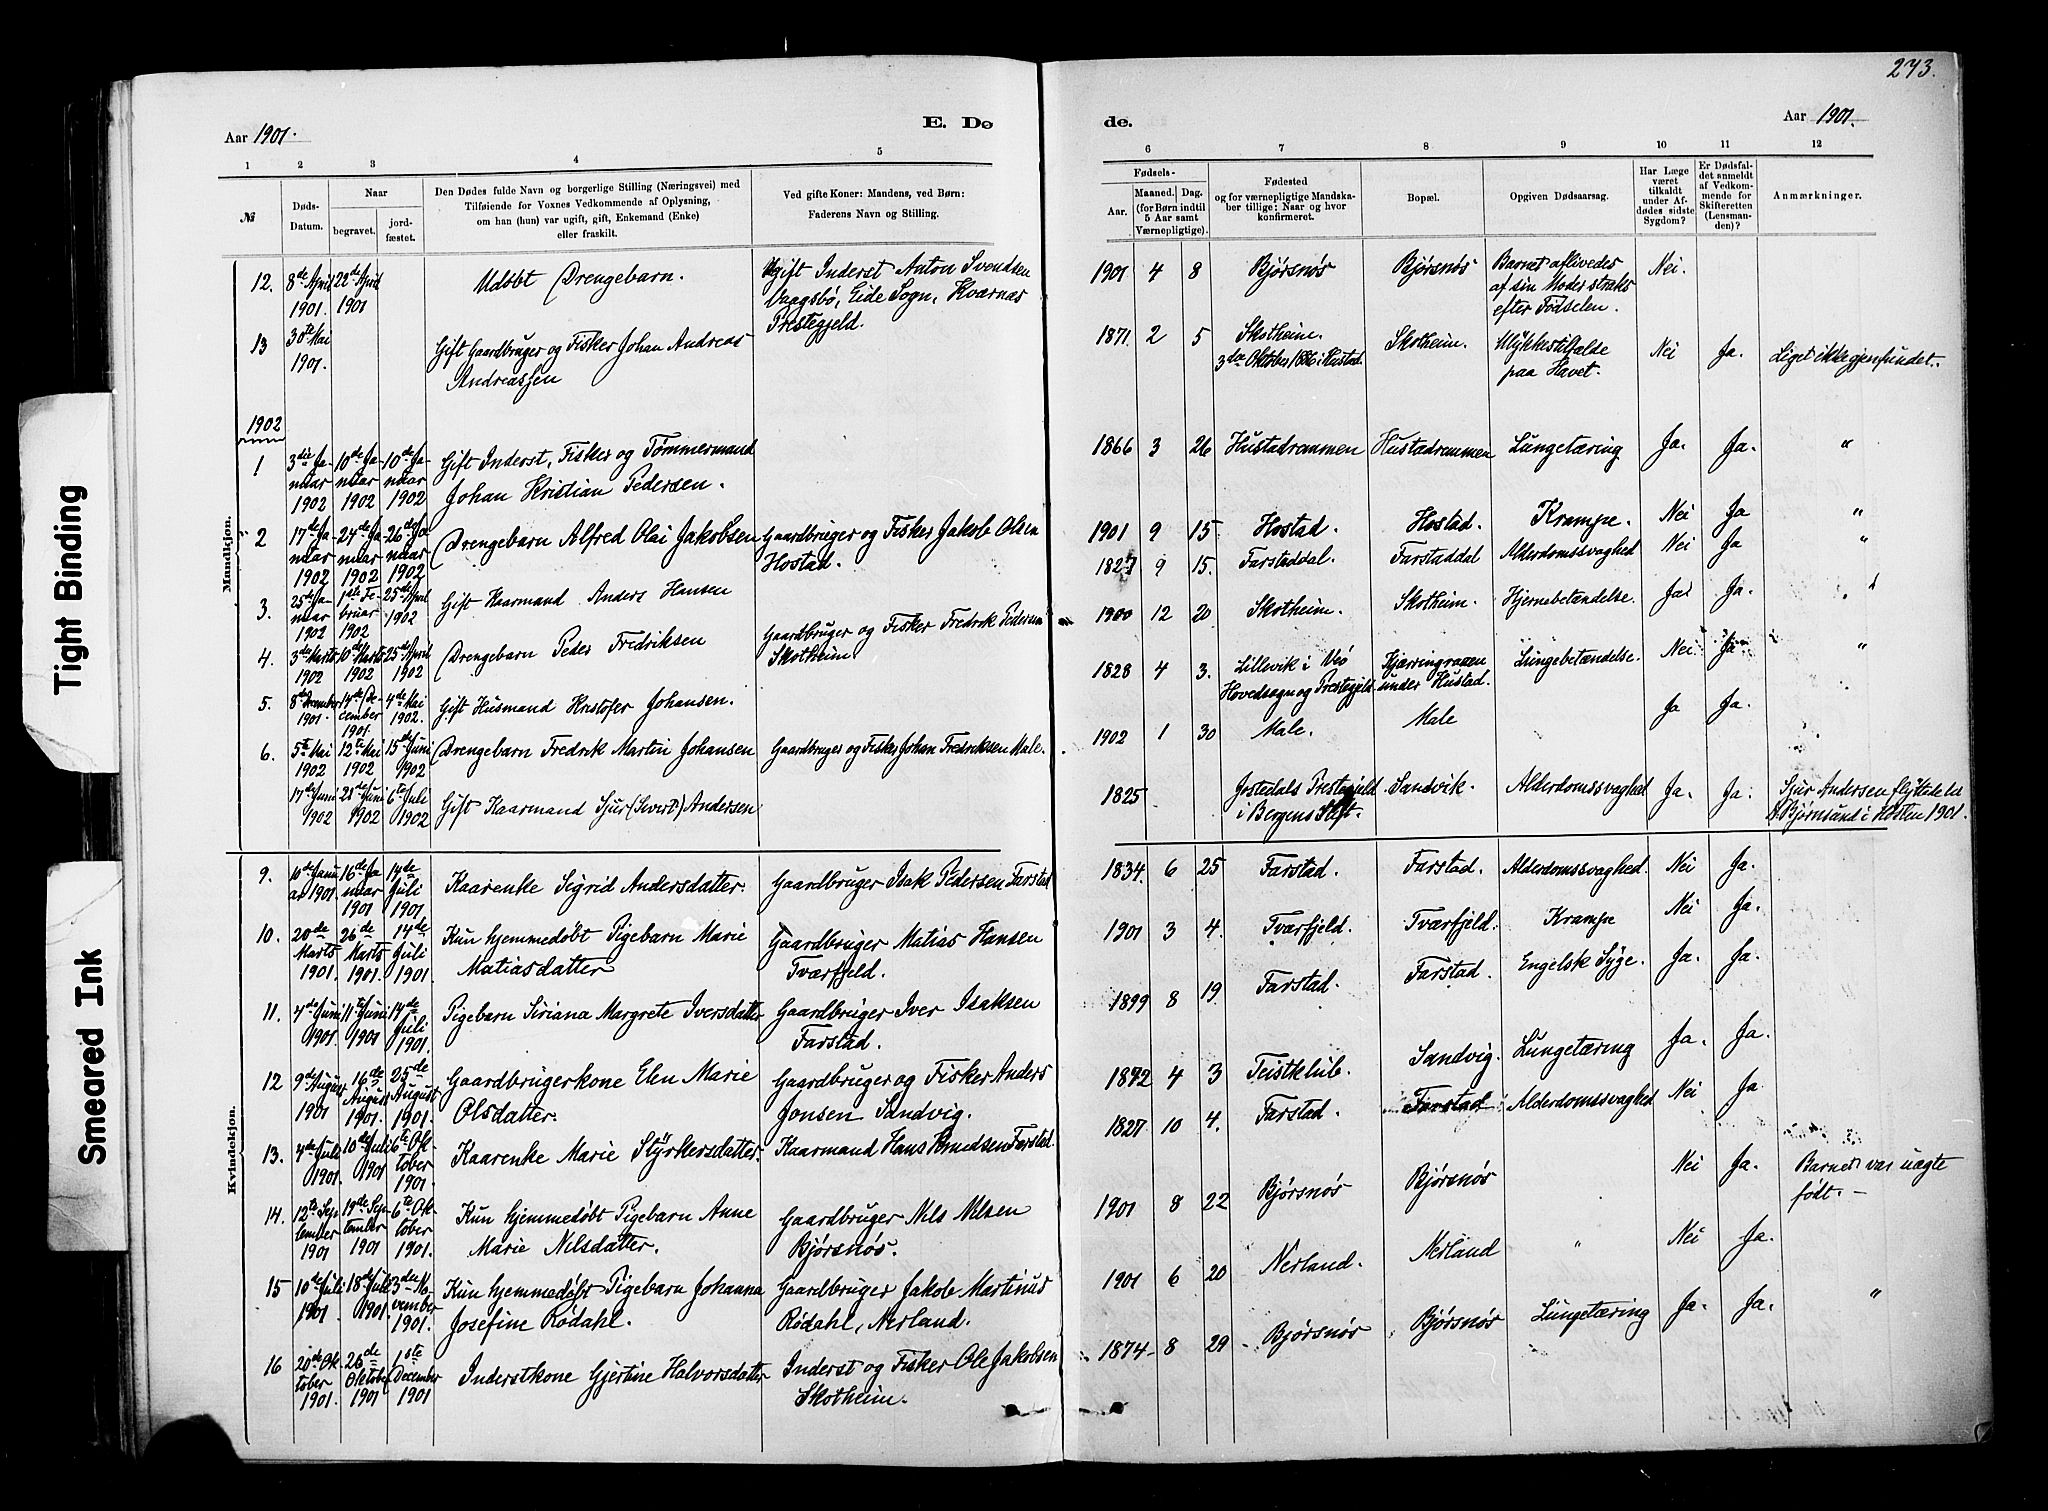 273.
Aar 1901.
E. Dø
de.
Aar 1901.
1 2 3 4 5
6 7 8 9 10 11 12
№
Døds-
Datum.
Naar
begravet.
jord-
fæstet.
Den Dødes fulde Navn og borgerlige Stilling (Næringsvei) med
Tilføiende for Voxnes Vedkommende af Oplysning,
om han (hun) var ugift, gift, Enkemand (Enke)
eller fraskilt.
Ved gifte Koner: Mandens, ved Børn:
Faderens Navn og Stilling.
Fødsels-
Aar.
Maaned. Dag.
(for Børn indtil
5 Aar samt
Værnepligtige).
Fødested
og for værnepligtige Mandska-
ber tillige: Naar og hvor
konfirmeret.
Bopæl.
Opgiven Dødsaarsag.
Har Læge
været
tilkaldt
under Af-
dødes sidste
Sygdom?
Er Dødsfal-
det anmeldt
af Vedkom-
mende for
Skifteretten
(Lensman-
den)?
Anmærkninger.
Mandkjøn.
12. 8de April 22de April Udøbt Drengebarn. Ugift Inderst Anton Svendsen 1901 4 8 Bjørsnøs Bjørsnøs Barnet aflivedes Nei.
1901. 1901 Vaagsbø, Eide Sogn, Kværnæs af sin Moder straks
Prestegjeld. efter Fødselen.
13 30te Mai Gift Gaardbruger og Fisker Johan Andreas 1871 2 5 Skotheim. Skotheim. Ulykkestilfælde Nei Ja. Liget ikke gjenfundet.
1901. Andreassen 3die Oktober 1886 i Hustad. paa Havet.
1902
1 3die Ja- 10de Ja- 10de Ja- Gift Inderst, Fisker og Tømmermand 1866 3 26 Hustadremmen Hustadremmen Lungetæring Ja. Ja. "
nuar nuar nuar Johan Kristian Pedersen.
1902 1902 1902
2 17de Ja- 24de Ja- 26de Ja- Drengebarn Alfred Olai Jakobsen Gaardbruger og Fisker Jakob Olsen 1901 9 15 Hostad. Hostad. Krampe. Nei Ja "
nuar nuar nuar Hostad.
1902 1902 1902
3. 25de Ja- 1ste Fe- 25de April Gift Kaarmand Anders Hansen 1827 9 15. Farstaddal. Farstaddal Alderdomssvaghed Nei Ja "
nuar bruar 1902
1902 1902
4. 3die Marts 10de Marts 25de April Drengebarn Peder Fredriksen Gaardbruger og Fisker Fredrik Pedersen 1900 12 20 Skotheim. Skotheim. Hjernebetændelse. Ja Ja. "
1902 1902 1902 Skotheim
5. 8de December 14de De- 4de Mai Gift Husmand Kristofer Johansen. 1828 4 3. Lillevik i Veø Kjærringraaen Lungebetændelse. Nei Ja "
1901. cember 1902. Hovedsogn og Prestegjeld. under Hustad.
1901
6. 5te Mai 12te Mai 15de Juni Drengebarn Fredrik Martin Johansen Gaardbruger og Fisker Johan Fredriksen Male. 1902 1 30 Male. Male Ja Ja.
1902 1902 1902
17de Juni 28de Juni 6te Juli Gift Kaarmand Sjur (Sivert) Andersen 1825 Jostedals Prestegjeld Sandvik. Alderdomssvaghed Ja. Ja. Sjur Andersen flyttede til
1902 1902 1902 i Bergens Stift. Bjørnsund i Høsten 1901.
Kvindekjøn.
9. 10de Janu- 16de Ja- 14de Kaarenke Sigrid Andersdatter. Gaardbruger Isak Pedersen Farstad 1834. 6 25 Farstad. Farstad. Alderdomssvaghed. Nei Ja.
ar 1901 nuar Juli
1901 1901
10. 20de 26de 14de Kun hjemmedøbt Pigebarn Marie Gaardbruger Matias Hansen 1901 3 4. Tværfjeld. Tværfjeld. Krampe Nei Ja.
Marts Marts Juli Matiasdatter Tværfjeld.
1901. 1901. 1901.
11. 4de Juni 11te Juni 14de Pigebarn Siriana Margrete Iversdatter Gaardbruger Iver Isaksen 1899 8 19 Farstad. Farstad. Engelsk Syge. Ja. Ja.
1901. 1901 Juli Farstad.
1901.
12 9de August 16de 25de Gaardbrugerkone Elen Marie Gaardbruger og Fisker Anders 1872 4 3 Teistklub. Sandvig. Lungetæring Ja. Ja.
1901 August August Olsdatter. Jonsen Sandvig.
1901. 1901.
13. 4de Juli 10de Juli 6te Ok- Kaarenke Marie Styrkersdatter. Kaarmand Hans Knudsen Farstad. 1827 10 4. Farstad. Farstad Alderdomssvaghed Nei Ja
1901. 1901 tober
1901.
14. 12te Sep- 19de Sep- 6te Ok- Kun hjemmedøbt Pigebarn Anne Gaardbruger Nils Nilsen 1901 8 22 Bjørsnøs Bjørsnøs Nei Ja. Barnet var uægte
tember tember tober Marie Nilsdatter. Bjørsnøs. født. -
1901 1901 1901.
15 10de Juli 18de Juli 3die No- Kun hjemmedøbt Pigebarn Johanna Gaardbruger Jakob Martinus 1901 6 20 Nerland. Nerland " Nei Ja.
1901 1901. vember Josefine Rødahl. Rødahl, Nerland.
1901.
16 20de Ok- 26de 1ste Inderstkone Gjertine Halvorsdatter Inderst og Fisker Ole Jakobsen 1874 8 29 Bjørsnøs Bjørsnøs Lungetæring Ja. Ja. "
tober Oktober December Skotheim.
1901. 1901 1901
Tight Binding
Smeared Ink